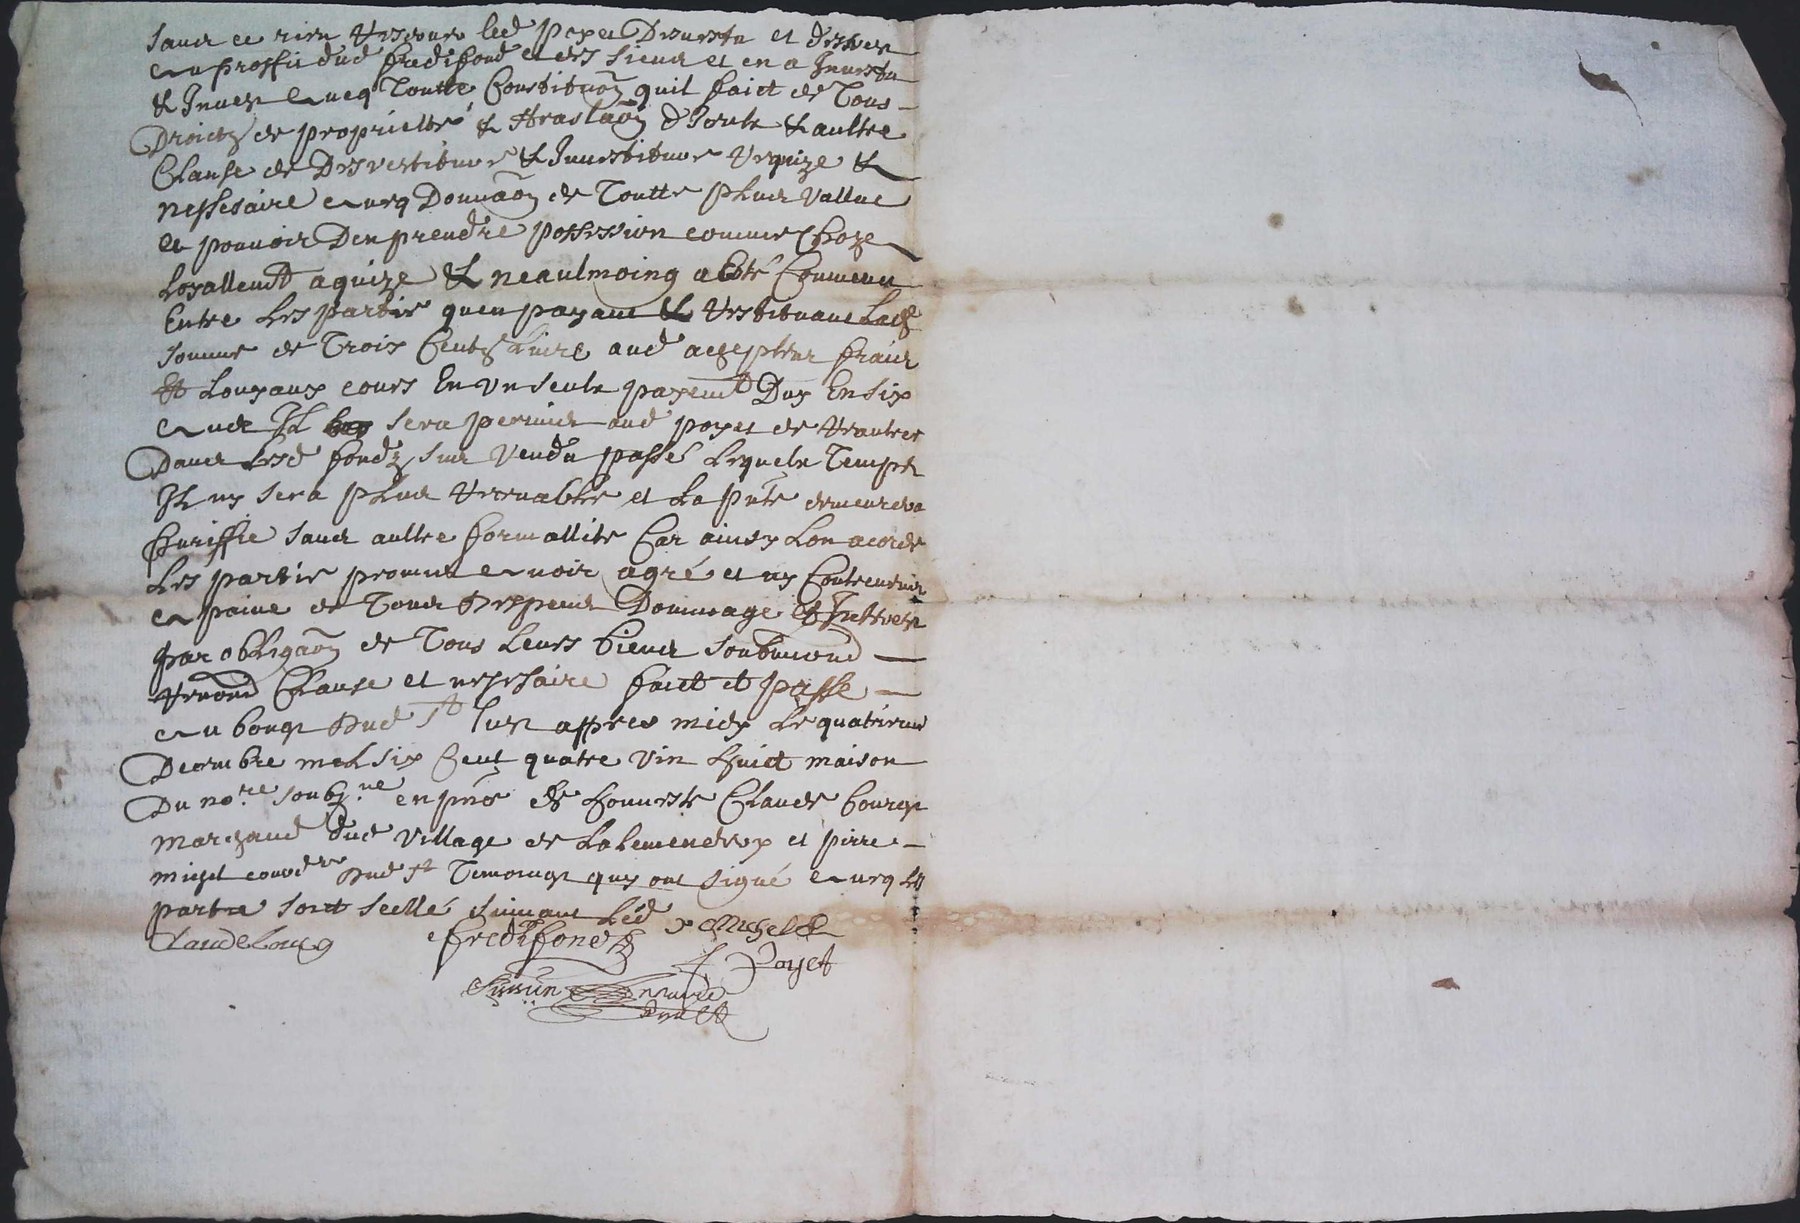 sans ce rien reserver led poyet Desvestu et desvest
au proffit dud fredifond et des siens et en a Investu
& Invest avecq Toutte Constituõn quil faict de Tous
Droictz de proprietté & translaõn d'icele & aultre
Clause de Desvestiture & Investiture requize &
nessesaire avecq Donnaõn de Toutte plus vallue
et pouvoir Den prendre possession comme choze
Loyallemt aquize & neaulmoing a esté Convenu
Entre Les partie quen payant & restituant Lad
somme de Trois Centz Livre aud achepteur frais
et Loyaux cours En un seule payemt Duy En six
ans Il sera permis aud poyet de rantrer
Dans Lesd fondz sus vendu passé Lequele Temps
Il ny sera plus recevable et La pnte demeurera
puriffie sans aultre formallite Car ainsy Lon acorde
Les partie promis avoir agré et ny Contrevenir
a paine de Tous Despens Dommage et Interest
par obligaõn de Tous Leurs biens soubmond
renond Clause et nessesaire faict et passe
au bourg dud St Just appres midy Le quatrieme
Decembre mil six Cent quatre vin huict maison
Du nore soubzne en pnce de honneste Claude bourg
marchand dud village de et pirre
michel dud St Temoings quy ont signé avecq les
partie sont scellé suivant Led
Claude bourg fredifond P Michel
Poyet
notaire